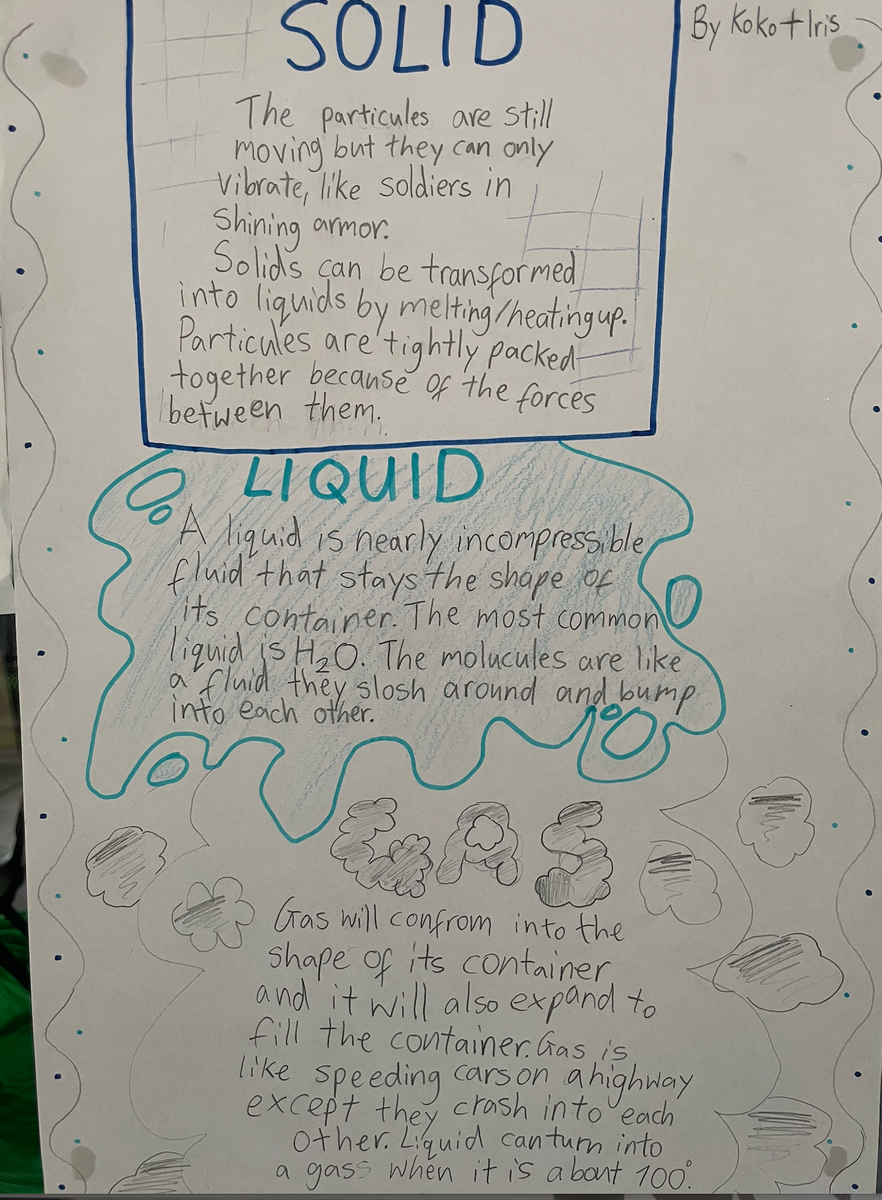 SOLID
By Koko + Iris
The particules are still
moving but they can only
vibrate, like soldiers in
shining armor.
Solids can be transformed
into liquids by melting/heating up.
Particules are tightly packed
together because of the forces
between them.
LIQUID
A liquid is nearly incompressible
fluid that stays the shape of
its container. The most common
liquid is H₂O. The molucules are like
a fluid they slosh around and bump
into each other.
GAS
Gas will confrom into the
shape of its container
and it will also expand to
fill the container. Gas is
like speeding cars on a highway
except they crash into each
other. Liquid can turn into
a gass when it is about 100°.